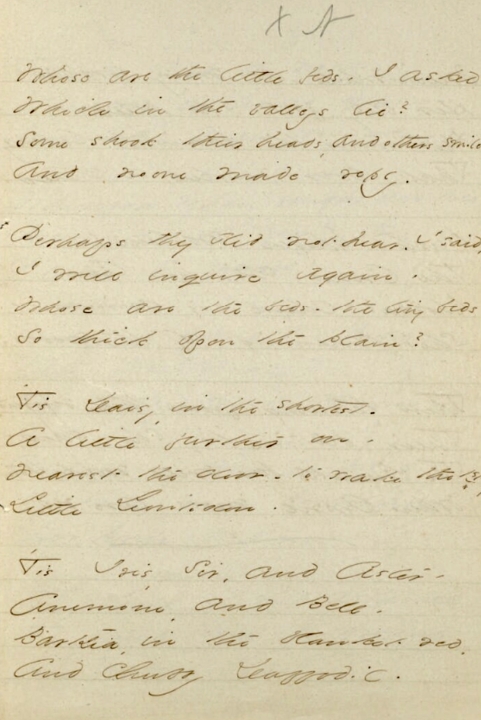 X N
Whose are the little beds - I asked
Which in the valleys lie?
Some shook their heads, and others smile
And no one made reply.
Perhaps they did not hear, I said,
I will inquire again -
Whose are the beds - the tiny beds
So thick upon the plain?
'Tis Daisy, in the shortest -
A little further on -
Nearest the door - to wake the 1st,
Little Leontodon.
'Tis Iris, Sir, and Aster -
Anemone, and Bell -
Bartsia, in the blanket red,
And chubby Daffodil.